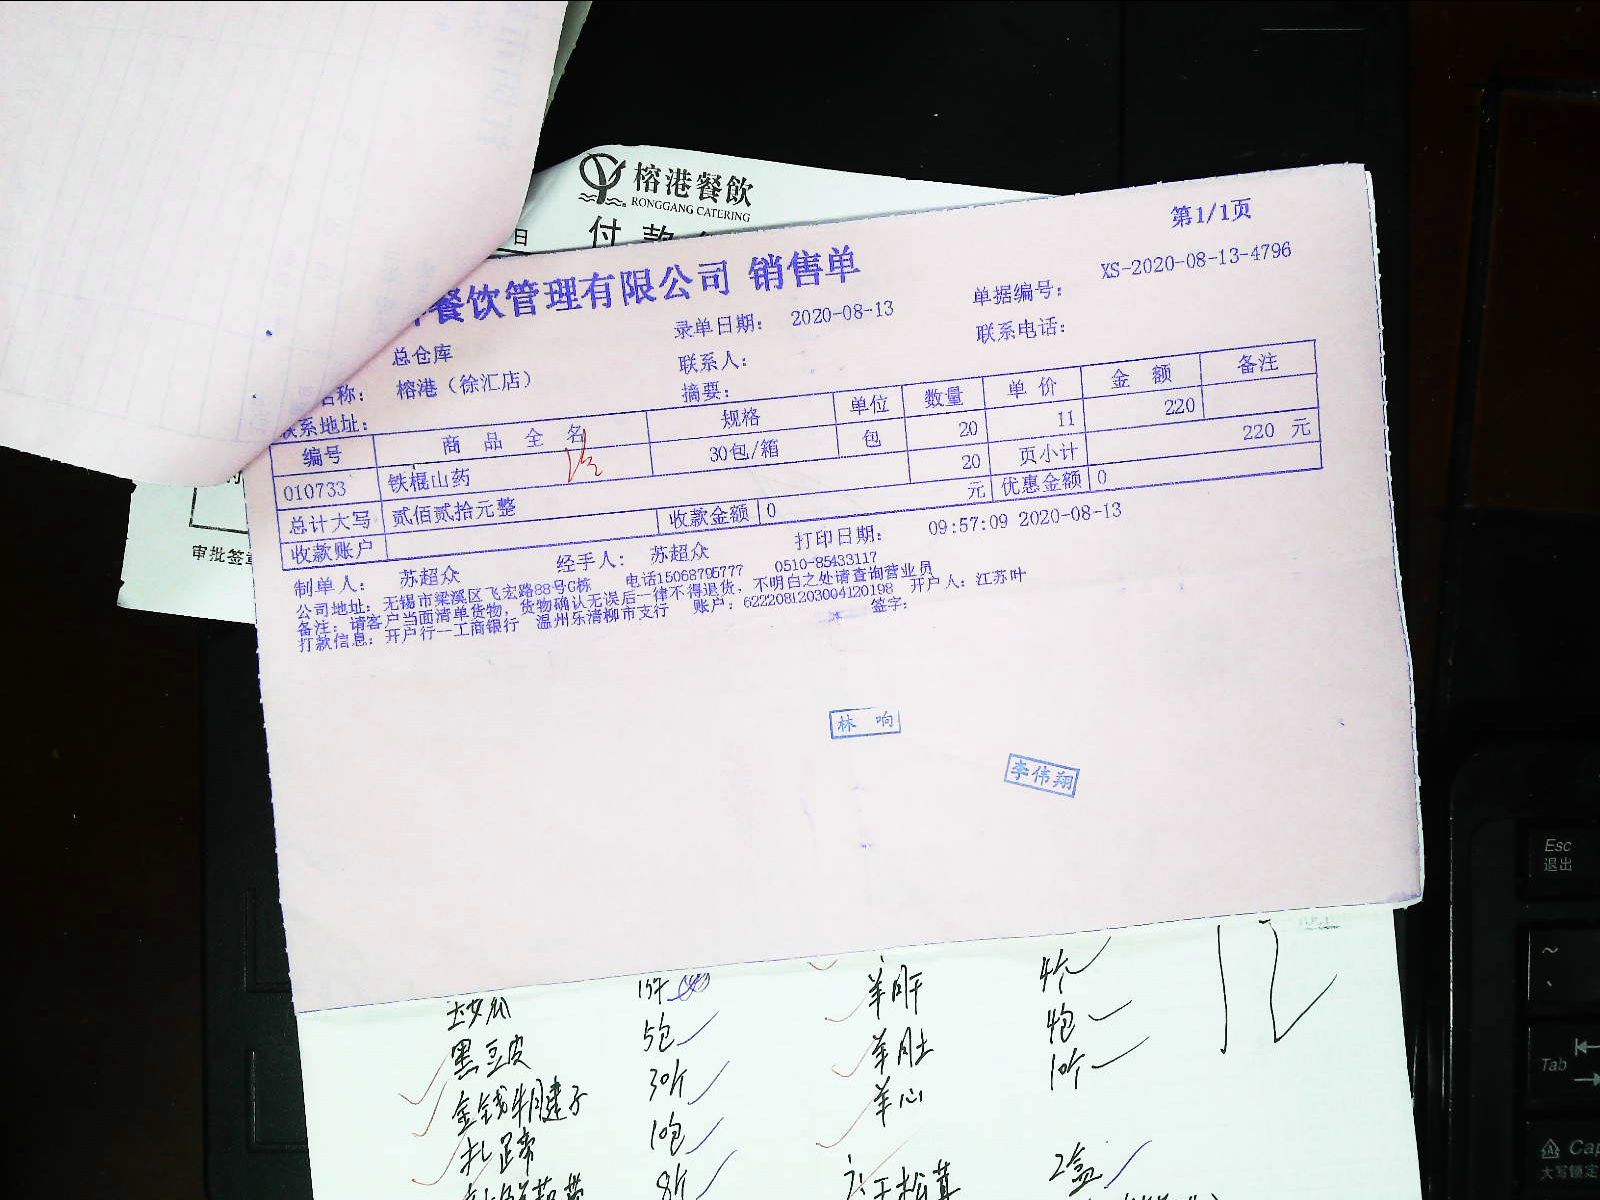 榕港餐飲
RONGGANG CATERING
日
付款
第1/1页
餐饮管理有限公司 销售单
录单日期： 2020-08-13
单据编号： XS-2020-08-13-4796
总仓库
联系人：
联系电话：
名称： 榕港（徐汇店）
摘要：
联系地址：
编号 商品全名 规格 单位 数量 单价 金额 备注
010733 铁棍山药 30包/箱 包 20 11 220
20 页小计 220 元
总计大写 贰佰贰拾元整 收款金额 0 元 优惠金额 0
收款账户
制单人： 苏超众 经手人： 苏超众 打印日期： 09:57:09 2020-08-13
公司地址：无锡市梁溪区飞宏路88号G栋 电话15068795777 0510-85433117
备注：请客户当面清单货物，货物确认无误后一律不得退货，不明白之处请查询营业员
打款信息：开户行一工商银行 温州乐清柳市支行 账户：6222081203004120198 开户人：江苏叶
签字：
审批签章
林响
李伟翔
羊肝 4个
黑豆皮 5包
羊肚 4包
金钱牛腱子 30斤
羊心 10个
扎蹄 10包
8斤
松茸 2盒
Esc
退出
~
Tab
Cap
大写锁定